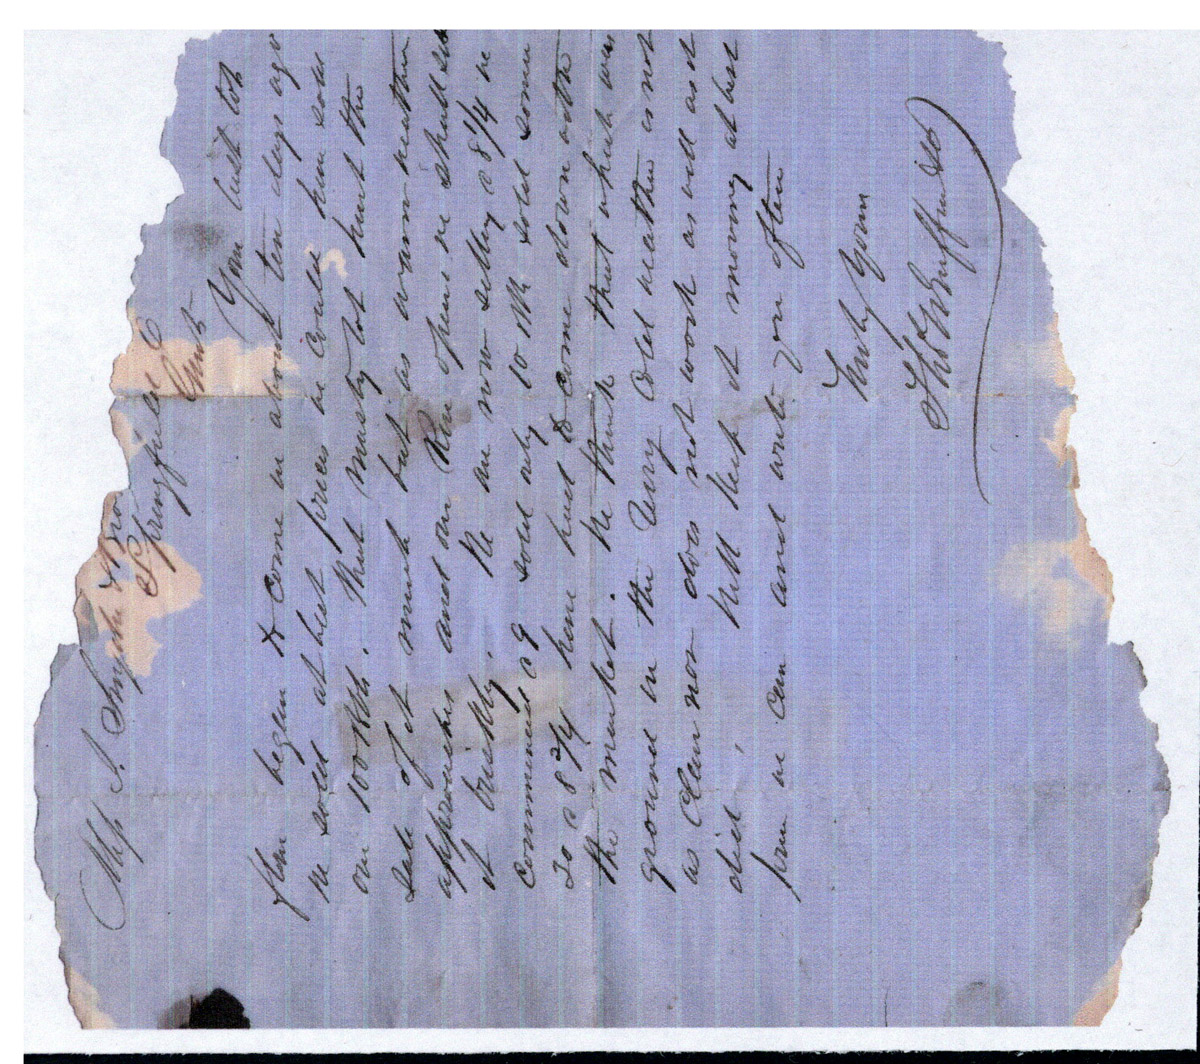 Mess J. Snyder & Bro
Springfield O
Gents Your last lot
flour began to come in about ten days ago
We sold at best prices we could have sold
on 100 Bbls. that mostly not hurt the
sale of it much but as warm weather
approaches and our River opens we shall sell
it briskly. We are now selling @ 8 1/4 we
commenced @ 9 sold only 10 Bbls sold some
20 @ 8 3/4 have had to come down with
the market. We think that wheat was
ground in the very cold weather is not
as clear nor does not work as well as it
did. Will keep it moving at best
from we can and write you often
Truly Yours
Thos